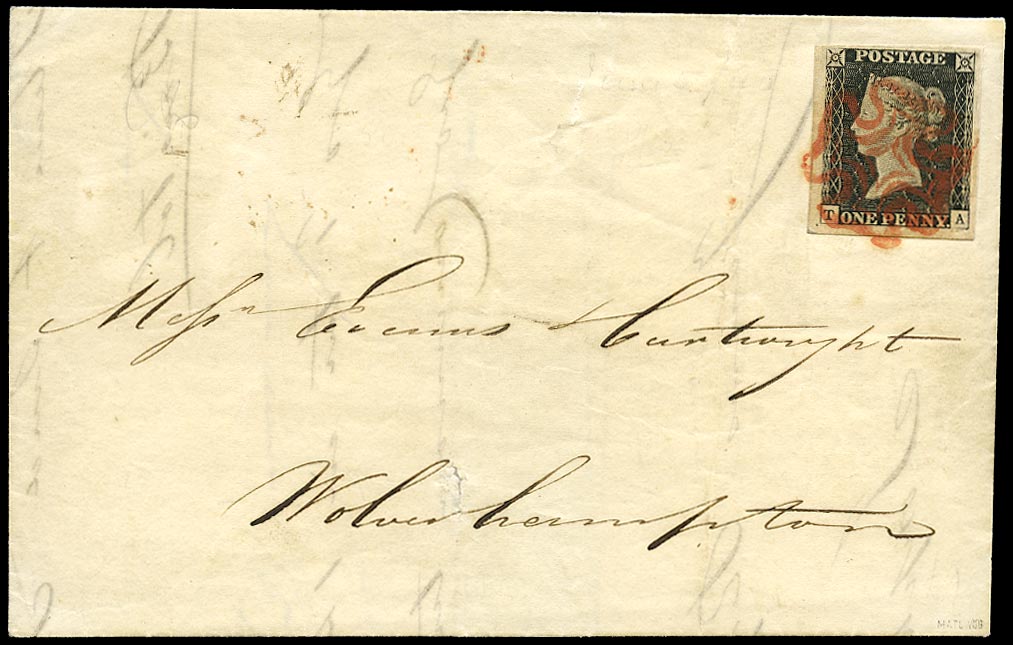 POSTAGE
T ONE PENNY. A
Messrs Evans & Cartwright
Wolverhampton